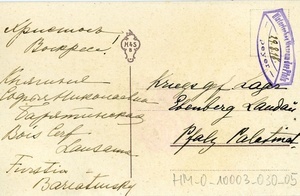 Христосъ
Воскресъ!
Княгиня
Софья Николаевна
Барятинская
Bois Cerf
Lausanne
Fürstin
Bariatinsky
H&S
B
Kriegsgef. Lager
Ebenberg Landau
Pfalz Palatinat
HM-0-10003-030-05